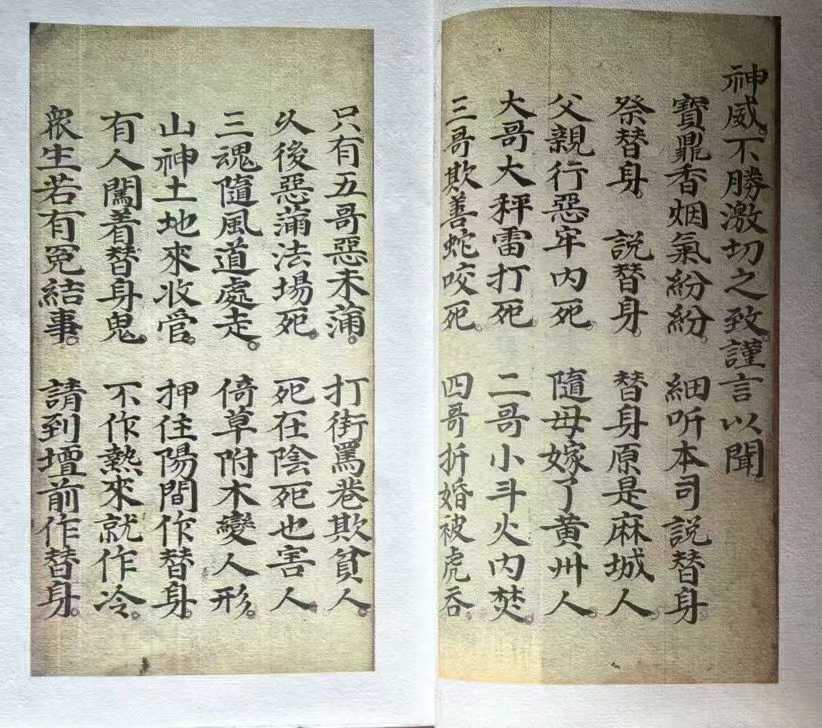 神威。不勝激切之致。謹言以聞
寶鼎香烟氣紛紛。細听本司説替身
祭替身。説替身。替身原是麻城人。
父親行惡牢内死。隨母嫁了黄州人。
大哥大秤雷打死。二哥小斗火内焚。
三哥欺善蛇咬死。四哥折婚被虎吞。
只有五哥惡未蒲。打街罵巷欺貧人。
乆後惡蒲法場死。死在陰死也害人。
三魂隨風道處走。倚草附木變人形。
山神土地來收管。押住陽間作替身。
有人闖着替身鬼。不作熱來就作冷。
衆生若有冤結事。請到壇前作替身。